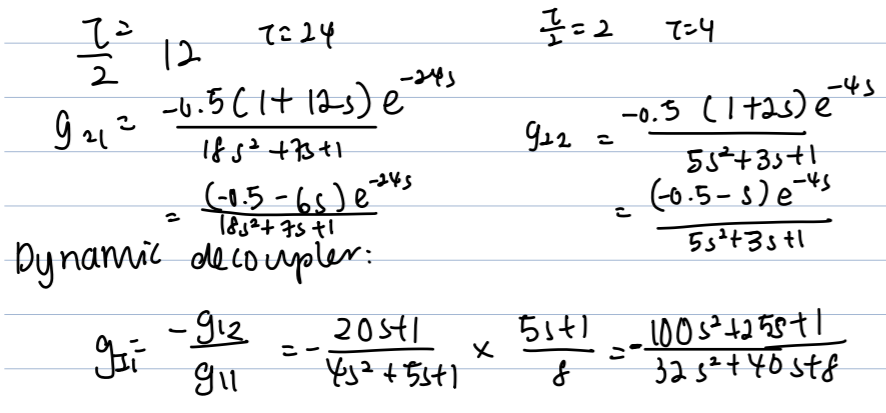 τ/2 = 12 τ=24 τ/2 = 2 τ=4
g21 = -0.5(1+12s)e^-24s / 18s²+7s+1 g22 = -0.5 (1+2s)e^-4s / 5s²+3s+1
= (-0.5-6s)e^-24s / 18s²+7s+1 = (-0.5-s)e^-4s / 5s²+3s+1
Dynamic decoupler:
gI1 = -g12 / g11 = - 20s+1 / 4s²+5s+1 × 5s+1 / 8 = - 100s²+25s+1 / 32s²+40s+8